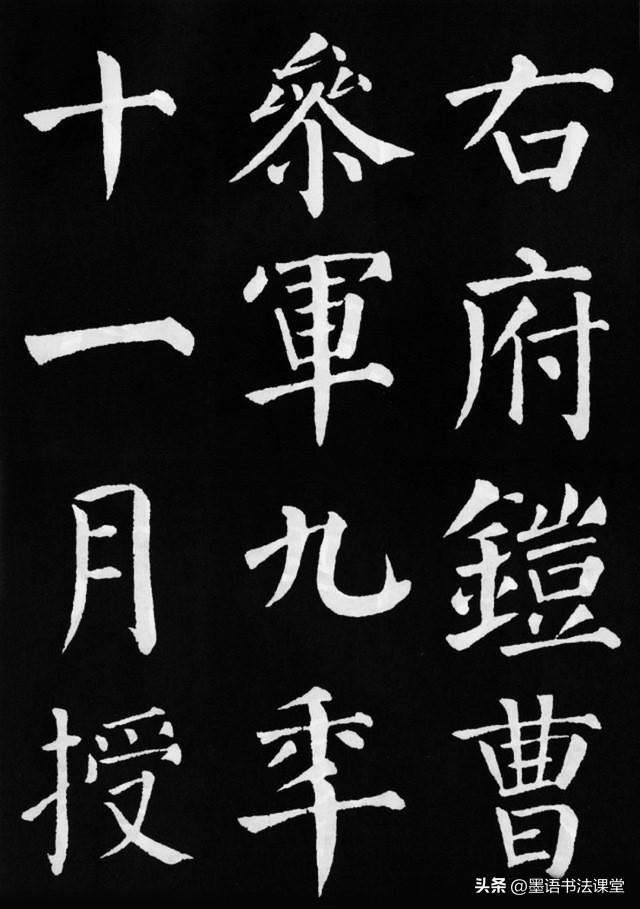 右府鎧曹
參軍九年
十一月授
头条 @墨语书法课堂